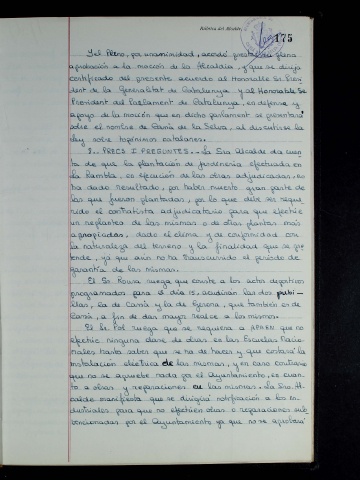 175
Y el Pleno, por unanimidad, acordó prestar su plena
aprobación a la moción de la Alcaldía, y que se dirija
certificado del presente acuerdo al Honorable Sr. Presi-
dent de la Generalitat de Catalunya y al Honorable Sr.
President del Parlament de Catalunya, en defensa y
apoyo de la moción que en dicho parlament se presentará
sobre el nombre de Cassà de la Selva, al discutirse la
ley sobre topónimos catalanes.
2.. PRECS I PREGUNTES.. La Sra. Alcalde da cuen-
ta de que la plantación de jardinería efectuada en
la Rambla, en ejecución de las obras adjudicadas, no
ha dado resultado, por haber muerto gran parte de
las que fueron plantadas, por lo que debe ser reque-
rido el contratista adjudicatario para que efectúe
un replanteo de las mismas o de otras plantas más
apropiadas, dado el clima, de conformidad con
la naturaleza del terreno y la finalidad que se pre-
tende, ya que aún no ha transcurrido el período de
garantía de las mismas.
El Sr. Roura ruega que conste a los actos deportivos
programados para el día 15, acudirán las dos pubi-
llas, la de Cassà y la de Gerona, que también es de
Cassà, a fin de dar mayor realce a los mismos.
El Sr. Pol ruega que se requiera a APAEN que no
efectúe ninguna clase de obras en las Escuelas Nacio-
nales hasta saber que se ha de hacer y que costará la
instalación eléctrica de las mismas, y en caso contrario
que no se apruebe nada por el Ayuntamiento, en cuan-
to a obras y reparaciones en las mismas. La Sra. Al-
calde manifiesta que se dirigirá notificación a los in-
dustriales para que no efectúen obras o reparaciones sub-
vencionadas por el Ayuntamiento ya que no se aprobará